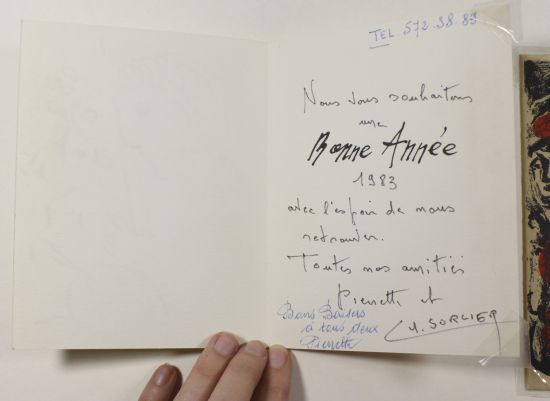 TEL. 572.38.89
Nous vous souhaitons
une
Bonne Année
1983
avec l'espoir de nous
retrouver.
Toutes nos amitiés
Pierrette et
SORLIER
Bons Baisers
à tous deux
Pierrette